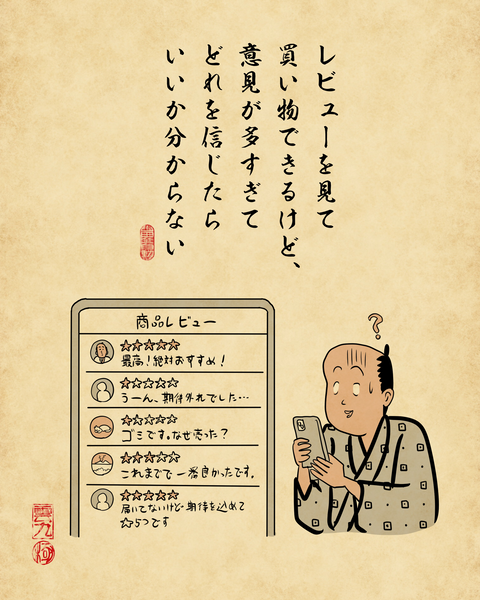 レビューを見て
買い物できるけど、
意見が多すぎて
どれを信じたら
いいか分からない
?
商品レビュー
☆☆☆☆☆
最高！絶対おすすめ！
☆☆☆☆☆
うーん、期待外れでした…
☆☆☆☆☆
ゴミです。なぜ売った？
☆☆☆☆☆
これまでで一番良かったです。
☆☆☆☆☆
届いてないけど期待を込めて
☆5つです